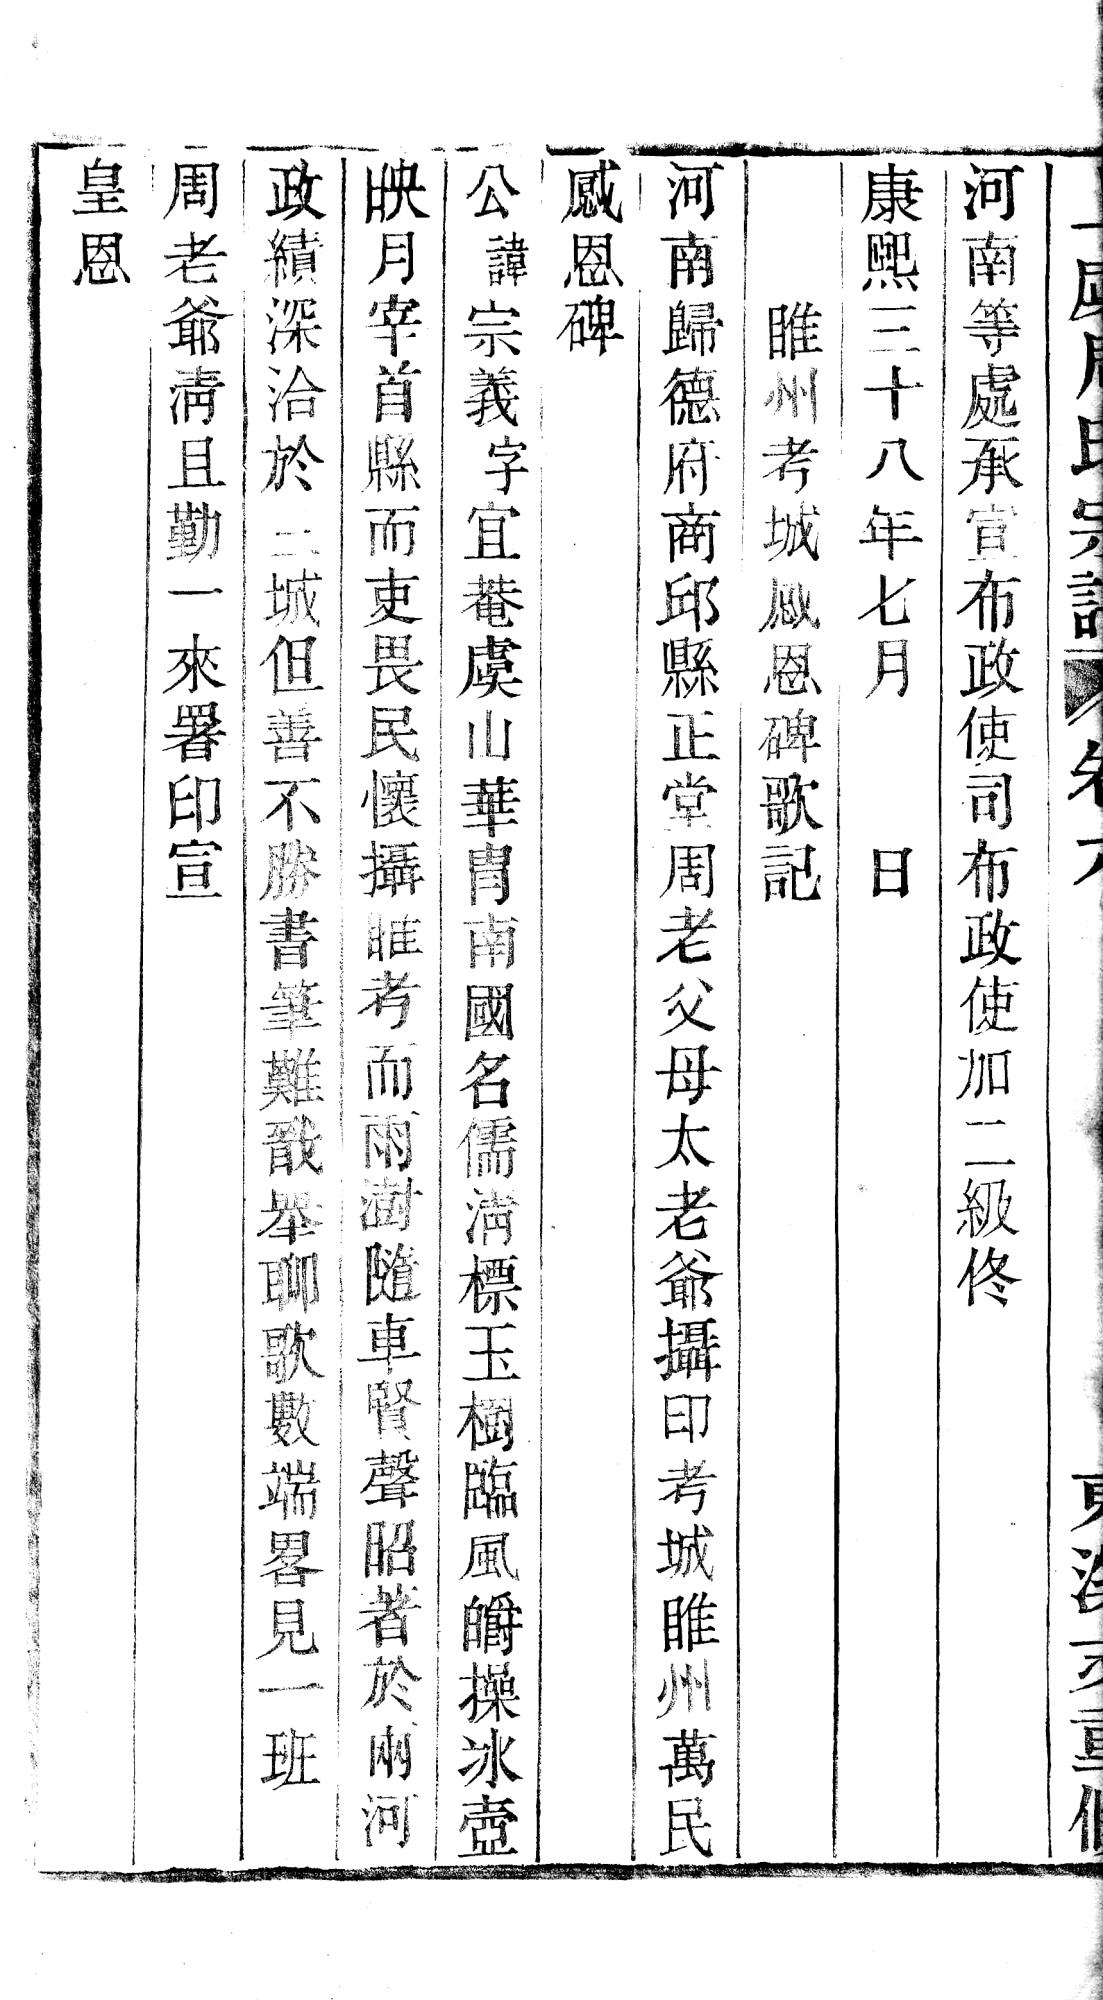 周氏宗譜 卷六
河南等處承宣布政使司布政使加二級佟
康熙三十八年七月 日
睢州考城感恩碑歌記
河南歸德府商邱縣正堂周老父母太老爺攝印考城睢州萬民
感恩碑
公諱宗義字宜菴虞山華胄南國名儒淸標玉樹臨風皭操冰壺
映月宰首縣而吏畏民懷攝睢考而雨澍隨車賢聲昭著於兩河
政績深洽於二城但善不勝書筆難戩舉聊歌數端畧見一班
周老爺淸且勤一來署印宣
皇恩